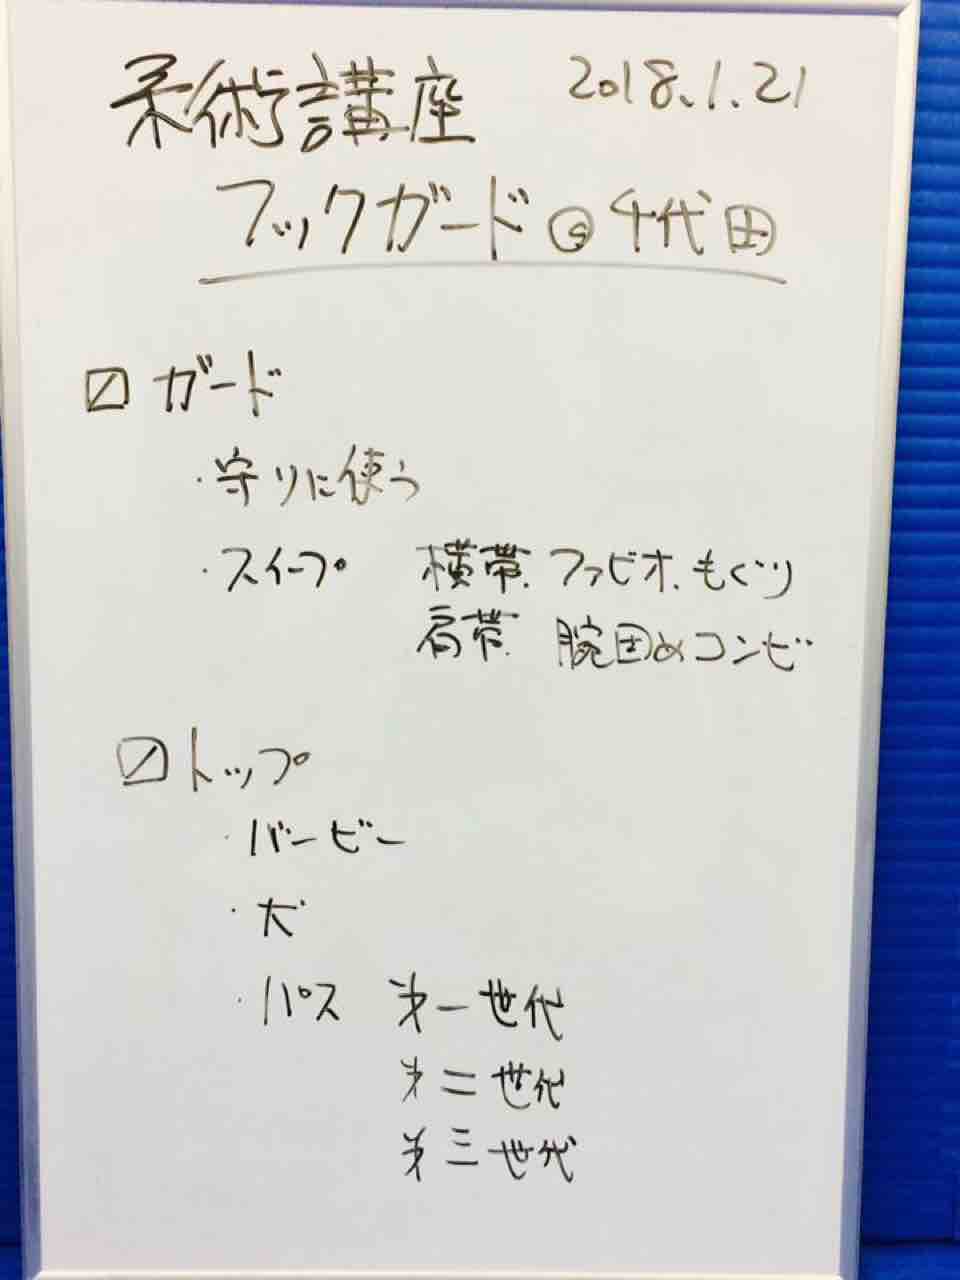 柔術講座 2018.1.21
フックガード@千代田
☑ ガード
・守りに使う
・スイープ 横帯.ファビオ.もぐり
肩帯. 腕固めコンビ
☑トップ
・バービー
・犬
・パス 第一世代
第二世代
第三世代